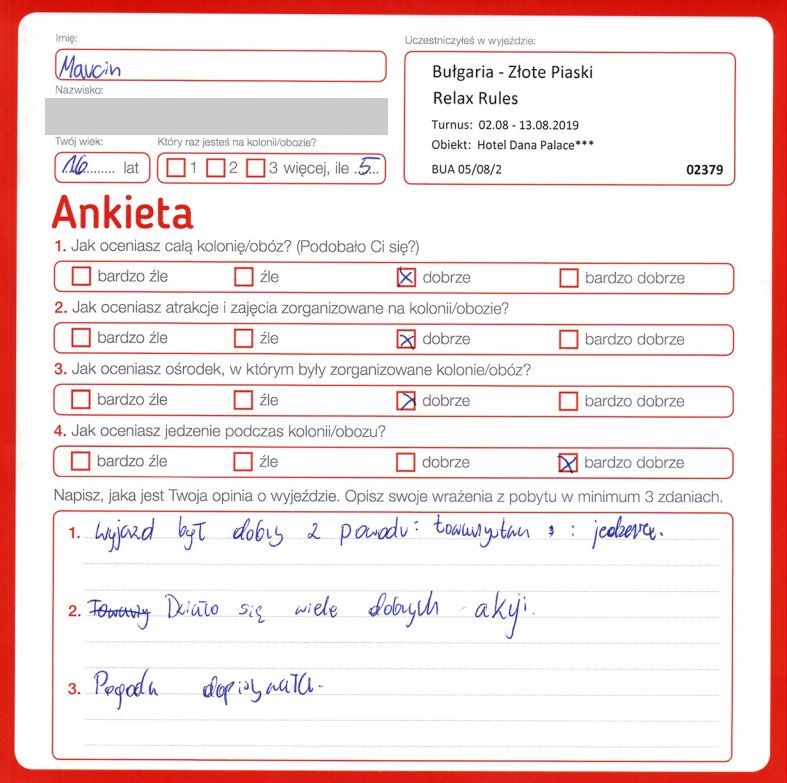 Imię:
Marcin
Nazwisko:
Twój wiek:
16 lat
Który raz jesteś na kolonii/obozie?
1 2 3 więcej, ile 5
Uczestniczyłeś w wyjeździe:
Bułgaria - Złote Piaski
Relax Rules
Turnus: 02.08 - 13.08.2019
Obiekt: Hotel Dana Palace***
BUA 05/08/2 02379
Ankieta
1. Jak oceniasz całą kolonię/obóz? (Podobało Ci się?)
bardzo źle źle dobrze bardzo dobrze
2. Jak oceniasz atrakcje i zajęcia zorganizowane na kolonii/obozie?
bardzo źle źle dobrze bardzo dobrze
3. Jak oceniasz ośrodek, w którym były zorganizowane kolonie/obóz?
bardzo źle źle dobrze bardzo dobrze
4. Jak oceniasz jedzenie podczas kolonii/obozu?
bardzo źle źle dobrze bardzo dobrze
Napisz, jaka jest Twoja opinia o wyjeździe. Opisz swoje wrażenia z pobytu w minimum 3 zdaniach.
1. Wyjazd był dobry z powodu: towarzystwa i jedzenie.
2. Działo się wiele dobrych akcji.
3. Pogoda dopisywała.